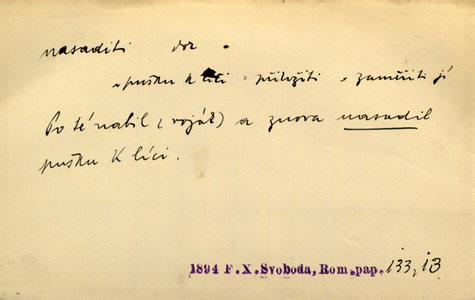 nasaditi dok.
„pušku k líci = přiložiti a zamířiti jí
Po té nabil (voják) a znova nasadil
pušku k líci.
1894 F. X. Svoboda, Rom. pap. 133, 13